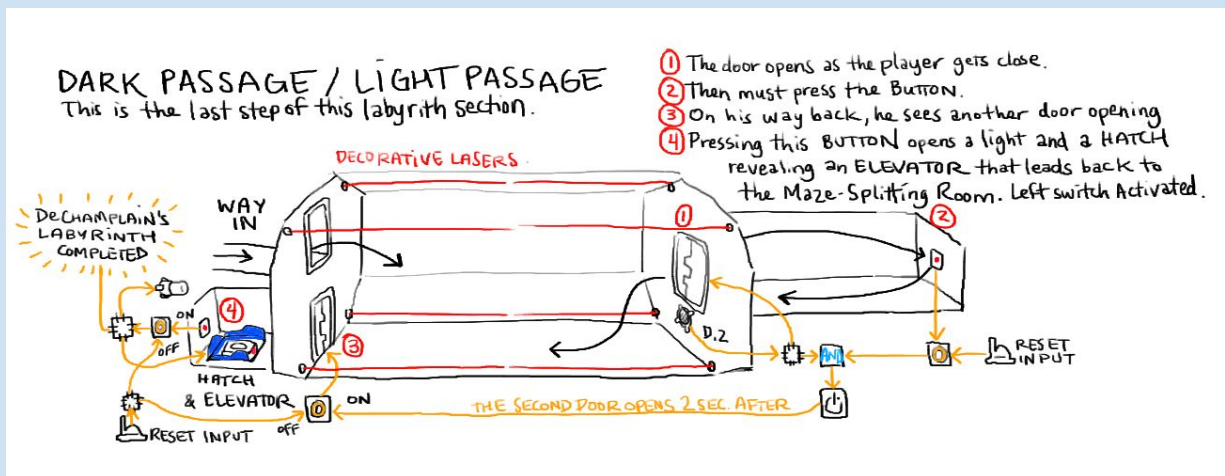 DARK PASSAGE / LIGHT PASSAGE
This is the last step of this labyrith section.
1 The door opens as the player gets close.
2 Then must press the BUTTON.
3 On his way back, he sees another door opening
4 Pressing this BUTTON opens a light and a HATCH
revealing an ELEVATOR that leads back to
the Maze-Splitting Room. Left switch Activated.
DECORATIVE LASERS
DeCHAMPLAIN'S
LABYRINTH
COMPLETED
WAY
IN
1
2
ON
4
OFF
3
D.2
AND
RESET
INPUT
HATCH
& ELEVATOR
ON
THE SECOND DOOR OPENS 2 SEC. AFTER
OFF
RESET INPUT